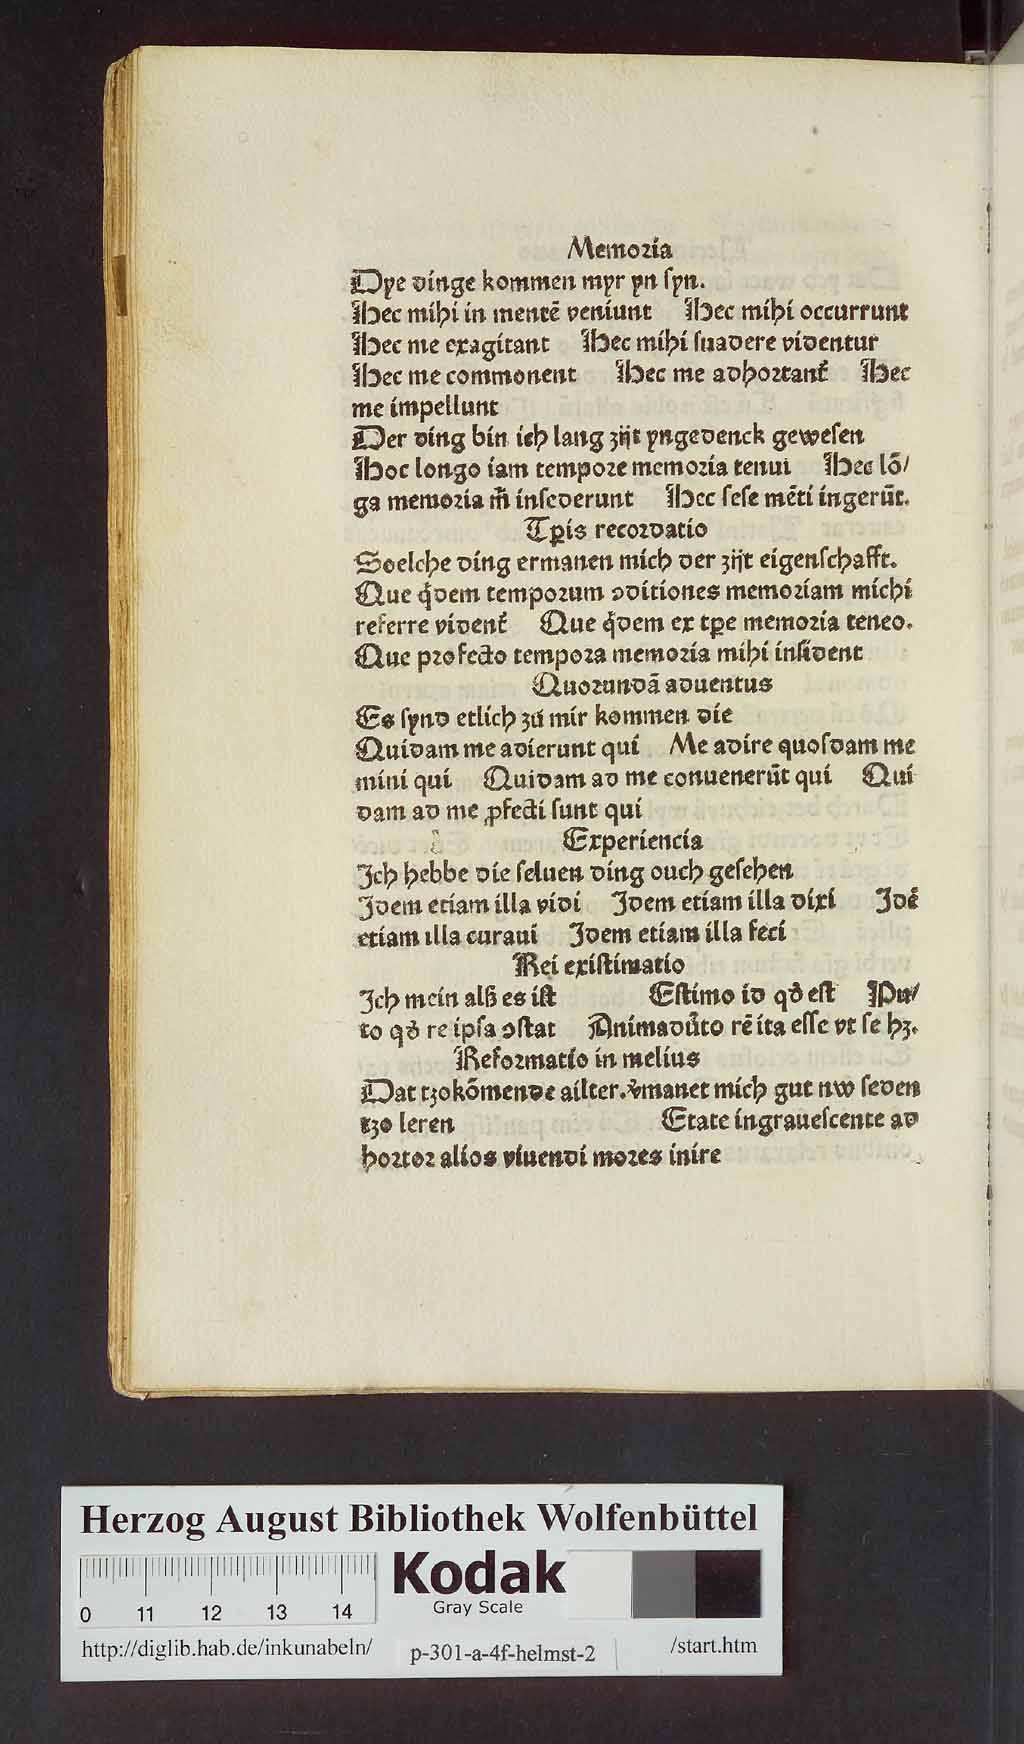 Memoria
Dye dinge kommen myr yn ſyn.
Hec mihi in mentē veniunt Hec mihi occurrunt
Hec me exagitant Hec mihi ſuadere videntur
Hec me commonent Hec me adhortant᷑ Hec
me impellunt
Der ding bin ich lang zijt yngedenck geweſen
Hoc longo iam tempore memoria tenui Hec lō/
ga memoria m̄ inſederunt Hec ſeſe mēti ingerūt.
Tꝑis recordatio
Soelche ding ermanen mich der zijt eigenſchafft.
Que qͥdem temporum ↄditiones memoriam michi
referre vident᷑ Que qͥdem ex tꝑe memoria teneo.
Que profecto tempora memoria mihi inſident
Quorundā aduentus
Es ſynd etlich zu mir kommen die
Quidam me adierunt qui Me adire quoſdam me
mini qui Quidam ad me conuenerūt qui Qui
dam ad me ꝓfecti ſunt qui
Experiencia
Ich hebbe die ſeluen ding ouch geſehen
Idem etiam illa vidi Idem etiam illa dixi Idē
etiam illa curaui Idem etiam illa feci
Rei exiſtimatio
Ich mein alß es iſt Eſtimo id qđ eſt Pu/
to qđ re ipſa ↄſtat Animadu͛to rē ita eſſe vt ſe hꝫ.
Reformatio in melius
Dat tzokōmende ailter. v͛manet mich gut nw ſeden
tzo leren Etate ingraueſcente ad
hortor alios viuendi mores inire
Herzog August Bibliothek Wolfenbüttel
0 11 12 13 14
Kodak
Gray Scale
http://diglib.hab.de/inkunabeln/ p-301-a-4f-helmst-2 /start.htm